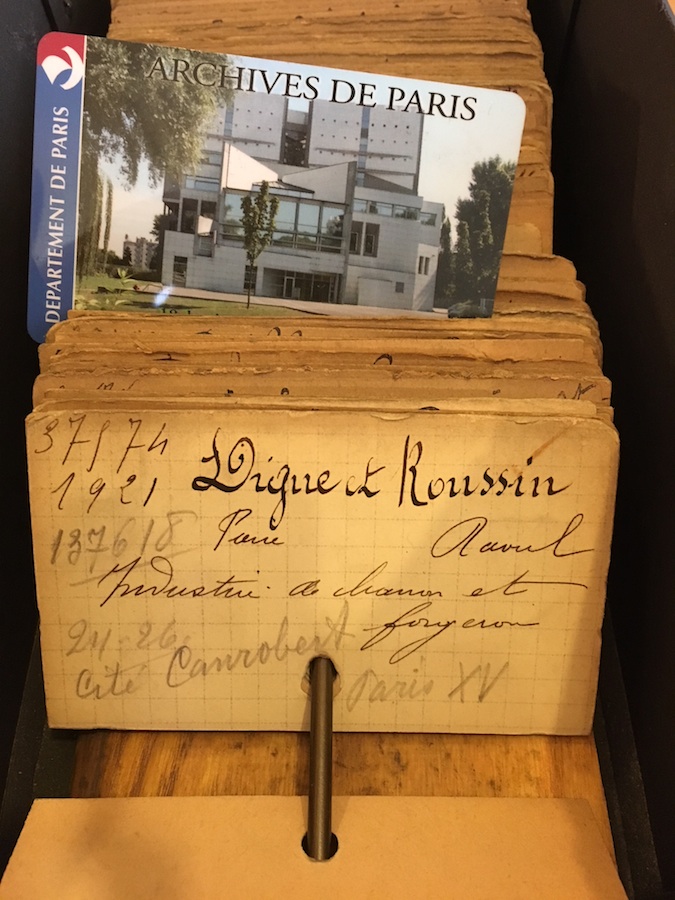 ARCHIVES DE PARIS
DEPARTEMENT DE PARIS
1921
Digne et Roussin
137618
Raoul
Industrie de charron et
forgeron
24-26
Cité Canrobert
Paris XV